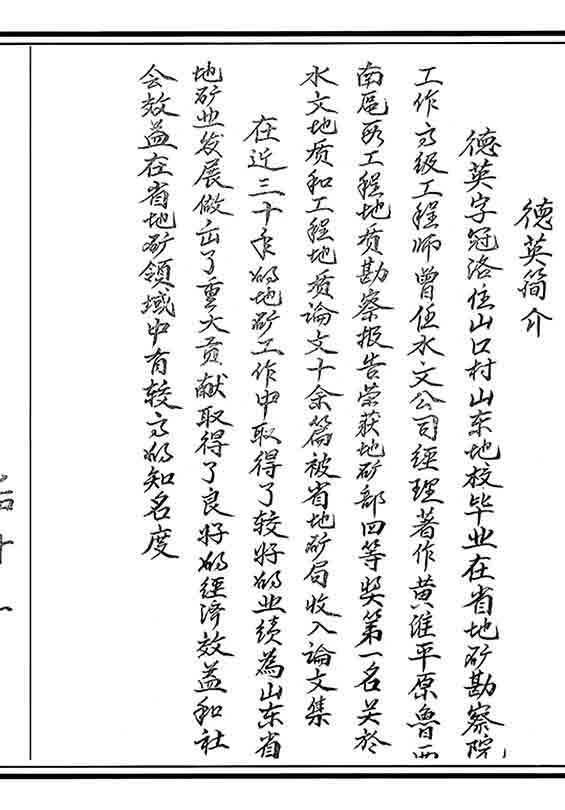 德英简介
德英字冠洛住山口村山东地校毕业在省地矿勘察院
工作高级工程师曾任水文公司經理著作黄淮平原魯西
南區段工程地质勘察报告荣获地矿部四等奖第一名关於
水文地质和工程地质論文十余篇被省地矿局收入論文集
在近三十年的地矿工作中取得了较好的业绩為山东省
地矿业发展做出了重大贡献取得了良好的經济效益和社
会效益在省地矿领域中有较高的知名度